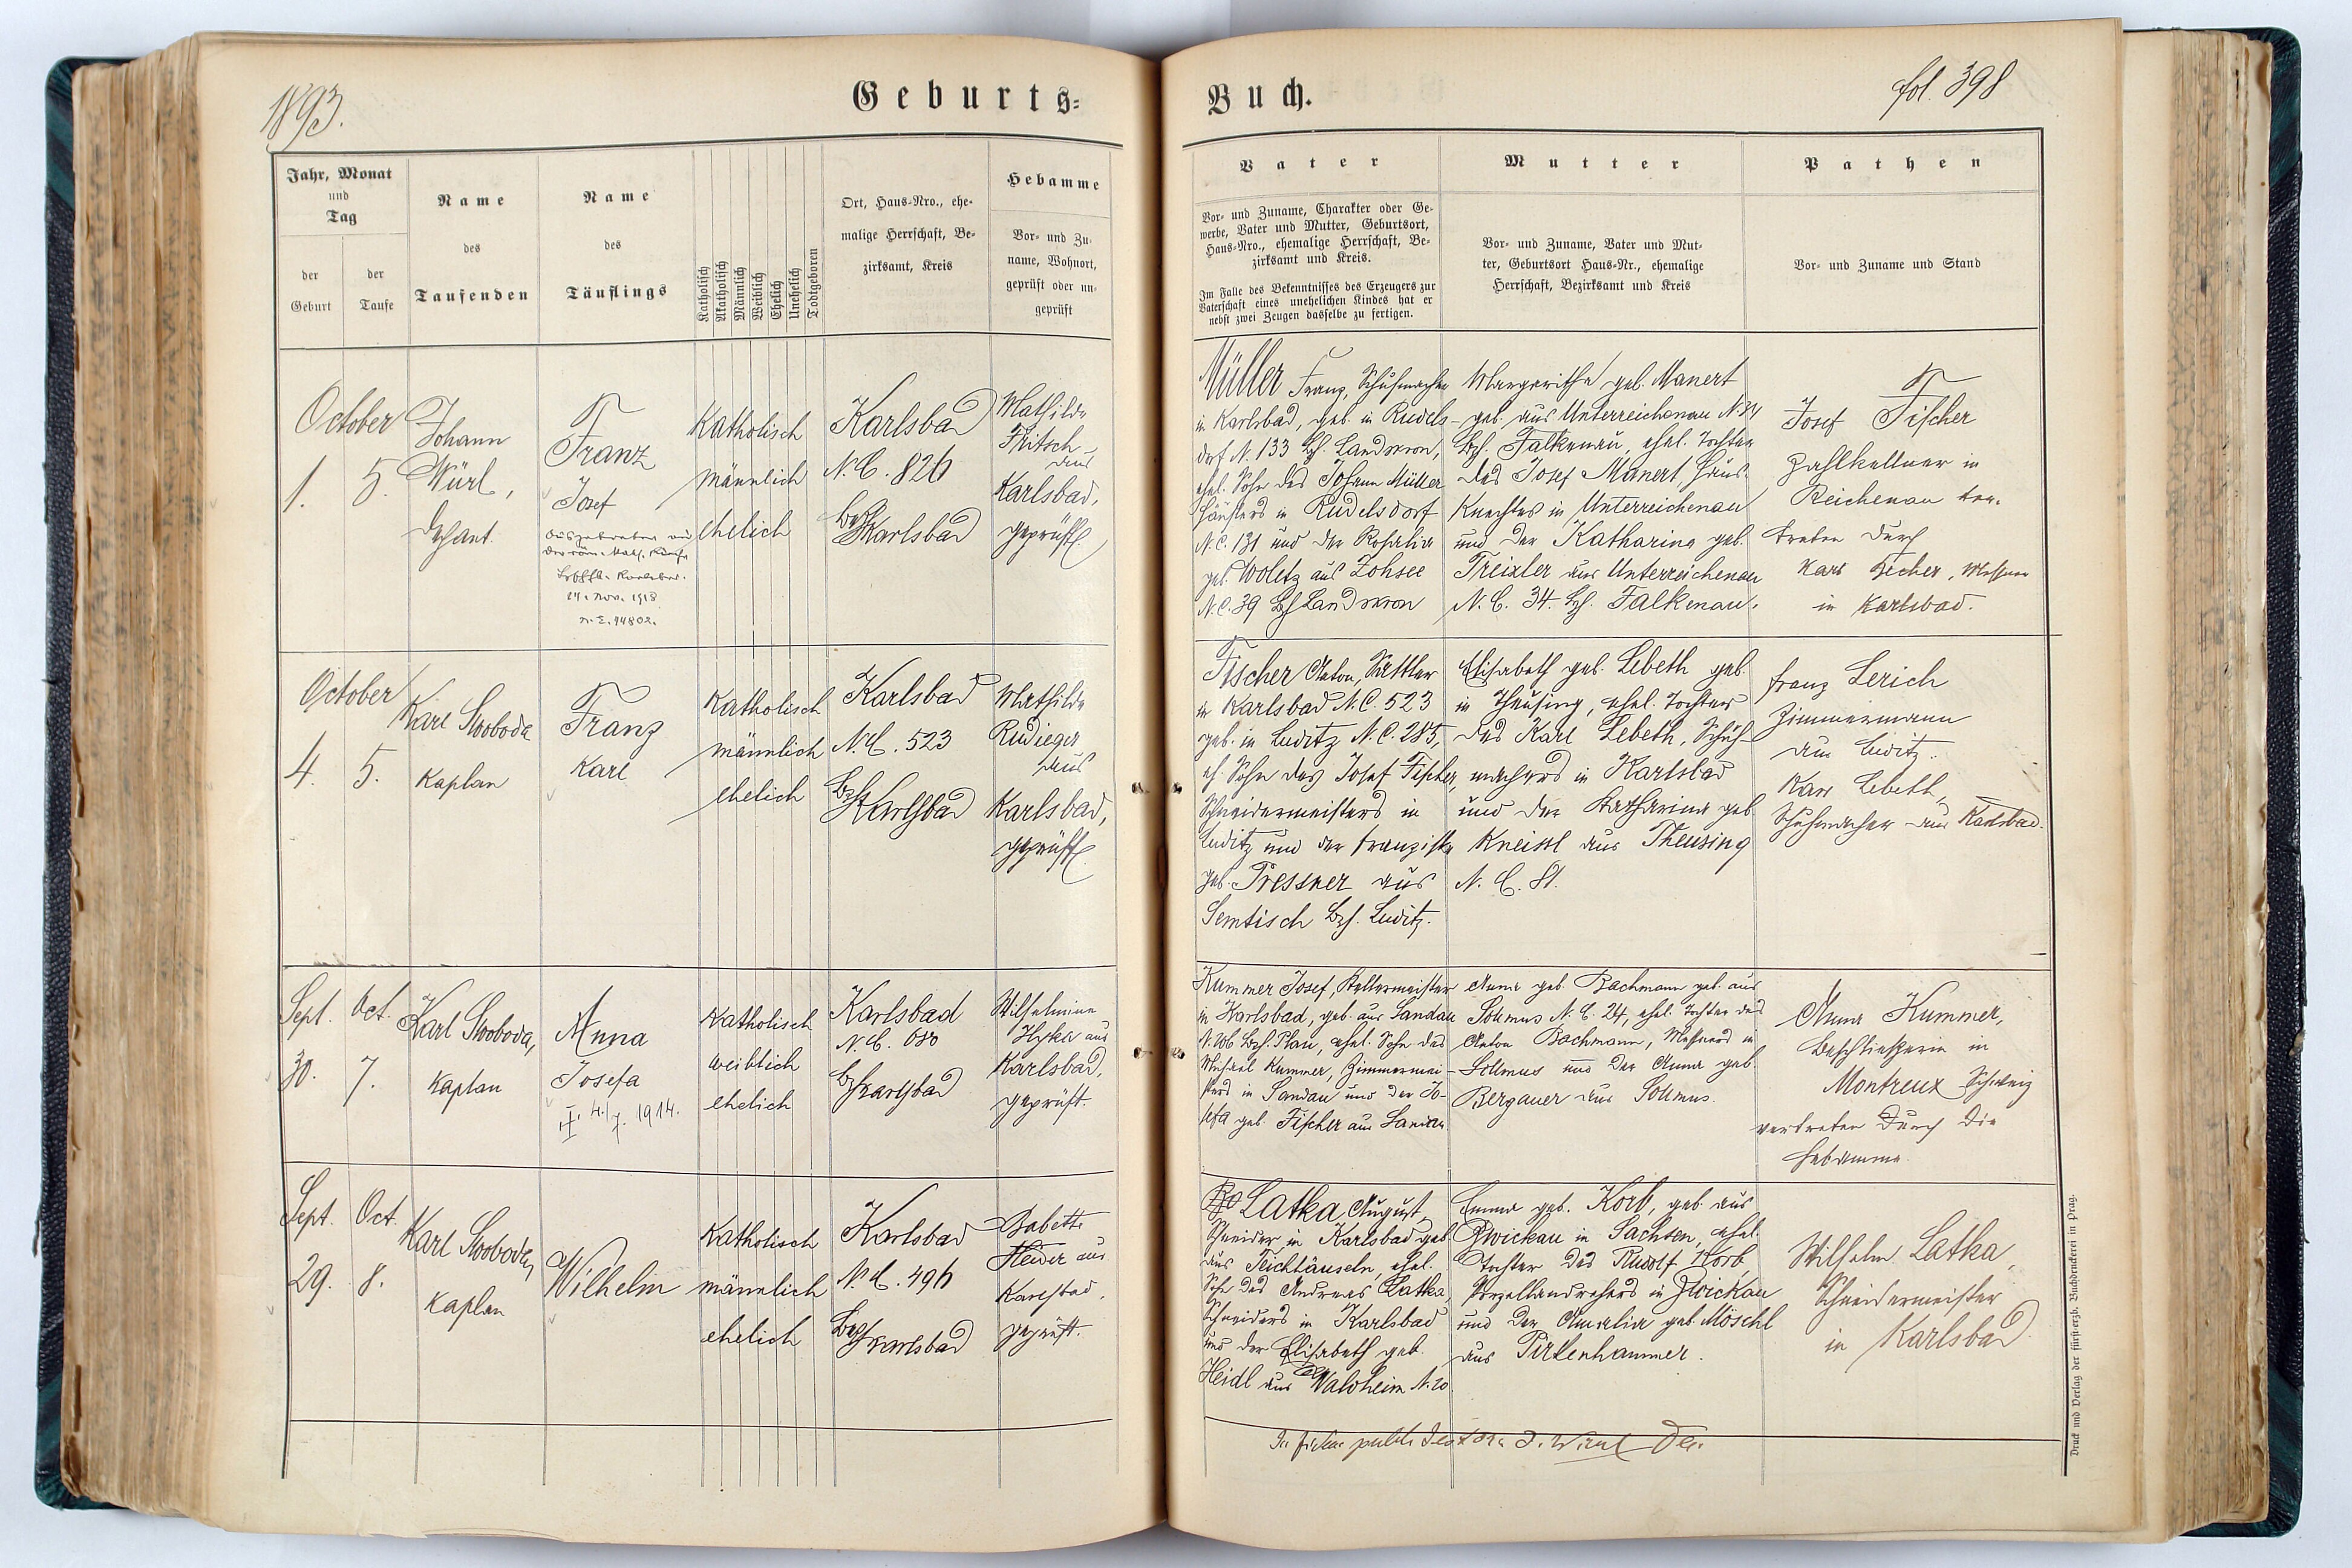 1893.
Geburts-
Jahr, Monat
und
Tag
der
Geburt
der
Taufe
Name
des
Taufenden
Name
des
Täuflings
Katholisch
Akatholisch
Männlich
Weiblich
Ehelich
Unehelich
Todtgeboren
Ort, Haus-Nro., ehe-
malige Herrschaft, Be-
zirksamt, Kreis
Hebamme
Vor- und Zu-
name, Wohnort,
geprüft oder un-
geprüft
October
1.
5.
Johann
Würl,
Dechant.
Franz
Josef
24. Nov. 1918
Katholisch
männlich
ehelich
Karlsbad
N.C. 826
Bzh. Karlsbad
Mathilde
Fritsch
aus
Karlsbad,
geprüft
October
4.
5.
Karl Swoboda
Kaplan
Franz
Karl
Katholisch
männlich
ehelich
Karlsbad
N.C. 523
Bzh. Karlsbad
Mathilde
Rudieger
aus
Karlsbad,
geprüft
Sept.
30.
Oct.
7.
Karl Swoboda,
Kaplan
Anna
Josefa
4./7. 1914.
Katholisch
weiblich
ehelich
Karlsbad
N.C.
Bzh. Karlsbad
Wilhelmine
aus
Karlsbad,
geprüft.
Sept.
29.
Oct.
8.
Karl Swoboda,
Kaplan
Wilhelm
Katholisch
männlich
ehelich
Karlsbad
N.C. 496
Bzh. Karlsbad
Babette
Heider aus
Karlsbad,
geprüft.
Buch.
fol. 398
Vater
Vor- und Zuname, Charakter oder Ge-
werbe, Vater und Mutter, Geburtsort,
Haus-Nro., ehemalige Herrschaft, Be-
zirksamt und Kreis.
Im Falle des Bekenntnisses des Erzeugers zur
Vaterschaft eines unehelichen Kindes hat er
nebst zwei Zeugen dasselbe zu fertigen.
Mutter
Vor- und Zuname, Vater und Mut-
ter, Geburtsort Haus-Nr., ehemalige
Herrschaft, Bezirksamt und Kreis
Pathen
Vor- und Zuname und Stand
Müller Franz, Schuhmacher
in Karlsbad, geb. in Rudels-
dorf N. 133 Bzh. Landskron,
ehel. Sohn des Johann Müller
Häuslers in Rudelsdorf
N.C. 131 und der Rosalia
geb. Woletz aus Zohsee
N.C. 39 Bzh Landskron
Margarithe geb. Manert
geb. aus Unterreichenau N. 34
Bzh. Falkenau, ehel. Tochter
des Josef Manert, Haus-
Knechtes in Unterreichenau
und der Katharina geb.
Treixler aus Unterreichenau
N.C. 34. Bzh. Falkenau.
Josef Fischer
Zahlkellner in
Reichenau ver-
treten durch
Karl Zecher, Messner
in Karlsbad.
Fischer Anton, Sattler
in Karlsbad N.C. 523
geb. in Luditz N.C. 285,
eh. Sohn des Josef Fischer,
Schneidermeisters in
Luditz und der Franziska
geb. Pressner aus
Semtisch Bzh. Luditz.
Elisabeth geb. Lebeth geb.
in Theusing, ehel. Tochter
des Karl Lebeth, Schuh-
machers in Karlsbad
und der Katharina geb.
Kneissl aus Theusing
N.C. 81.
Franz Lerich
Zimmermann
aus Luditz.
Karl Lebeth,
Schuhmacher aus Karlsbad.
Kummer Josef, Kellermeister
in Karlsbad, geb. aus Sandau
N. 206 Bzh. Plan, ehel. Sohn des
Michael Kummer, Zimmermei-
sters in Sandau und der Jo-
sefa geb. Fischer aus Sandau
Anna geb. Bachmann geb. aus
Sollmus N.C. 24, ehel. Tochter des
Anton Bachmann, Messners in
Sollmus und der Anna geb.
Bergauer aus Sollmus.
Anna Kummer,
Beschließerin in
Montreux Schweiz
vertreten durch die
Hebamme.
Latka August,
Schneider in Karlsbad geb.
aus Teichhäuseln, ehel.
Sohn des Andreas Latka,
Schneiders in Karlsbad
und der Elisabeth geb.
Heidl aus Waldheim N. 20.
Emma geb. Korb, geb. aus
Zwickau in Sachsen, ehel.
Tochter des Rudolf Korb,
Porzellandrehers in Zwickau
und der Amalia geb. Möschl
aus Pirkenhammer.
Wilhelm Latka,
Schneidermeister
in Karlsbad.
Druck und Verlag der fürsterzb. Buchdruckerei in Prag.